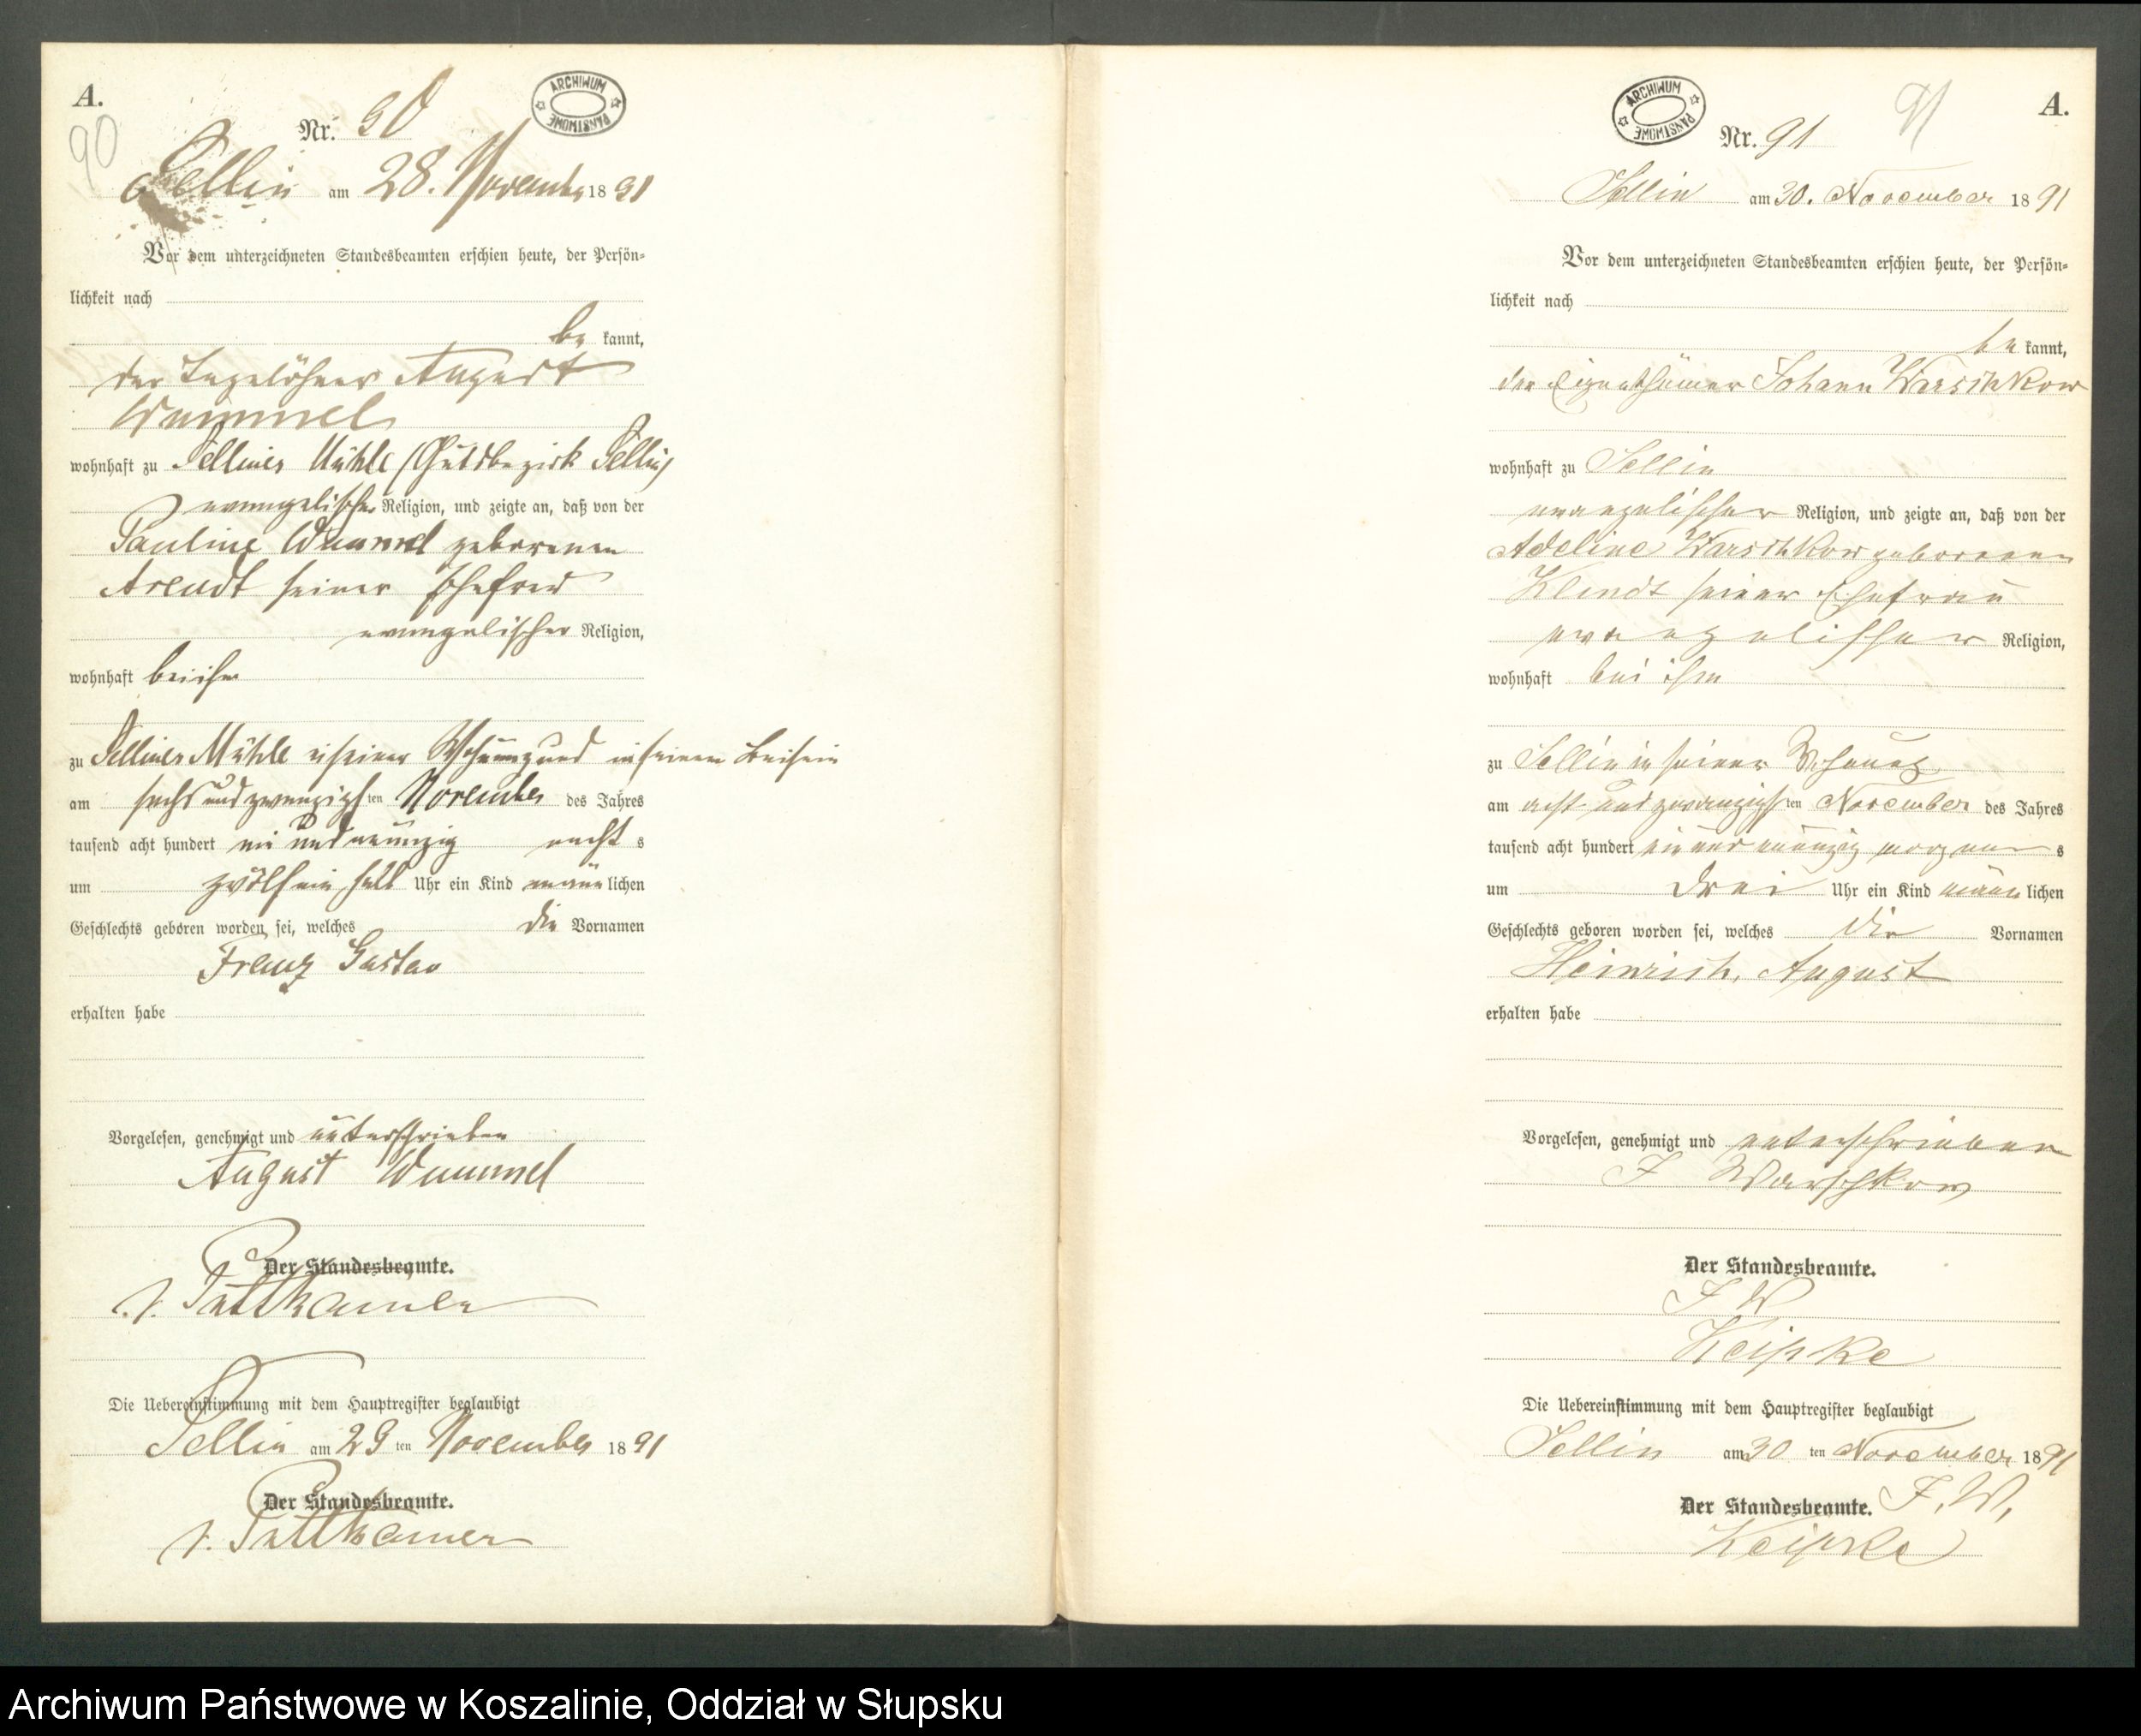 A.
90
ARCHIWUM PAŃSTWOWE
Nr. 90
Sellin am 28. November 1891
Vor dem unterzeichneten Standesbeamten erschien heute, der Persön-
lichkeit nach
be kannt,
der Tagelöhner August
Wummel
wohnhaft zu Selliner Mühle (Gutsbezirk Sellin)
evangelischer Religion, und zeigte an, daß von der
Pauline Wummel geborenen
Arendt seiner Ehefrau
evangelischer Religion,
wohnhaft bei ihm
zu Selliner Mühle in seiner Wohnung und in seinem Beisein
am sechs und zwanzigsten November des Jahres
tausend acht hundert ein und neunzig nachts
um zwölf ein halb Uhr ein Kind männlichen
Geschlechts geboren worden sei, welches die Vornamen
Franz Gustav
erhalten habe
Vorgelesen, genehmigt und unterschrieben
August Wummel
Der Standesbeamte.
v. Puttkamer
Die Uebereinstimmung mit dem Hauptregister beglaubigt
Sellin am 29 ten November 1891
Der Standesbeamte.
v. Puttkamer
ARCHIWUM PAŃSTWOWE
91
A.
Nr. 91
Sellin am 30. November 1891
Vor dem unterzeichneten Standesbeamten erschien heute, der Persön-
lichkeit nach
be kannt,
der Eigenthümer Johann Warschkow
wohnhaft zu Sellin
evangelischer Religion, und zeigte an, daß von der
Adeline Warschkow geborenen
Klindt seiner Ehefrau
evangelischer Religion,
wohnhaft bei ihm
zu Sellin in seiner Wohnung
am acht und zwanzigsten November des Jahres
tausend acht hundert ein und neunzig morgens
um drei Uhr ein Kind männlichen
Geschlechts geboren worden sei, welches die Vornamen
Heinrich, August
erhalten habe
Vorgelesen, genehmigt und unterschrieben
J Warschkow
Der Standesbeamte.
J V
Keipke
Die Uebereinstimmung mit dem Hauptregister beglaubigt
Sellin am 30 ten November 1891
Der Standesbeamte. J. V.
Keipke
Archiwum Państwowe w Koszalinie, Oddział w Słupsku